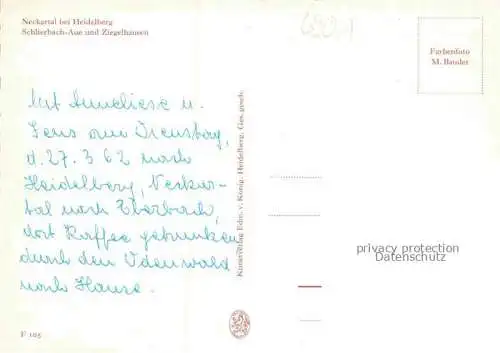 Neckartal bei Heidelberg
Schlierbach-Aue und Ziegelhausen
Farbenfoto
M. Bauder
Mit Anneliese u.
Jens am Dienstag,
d. 27. 3 62 nach
Heidelberg, Neckar-
tal nach Eberbach,
dort Kaffee getrunken
durch den Odenwald
nach Hause.
Kunstverlag Edm. v. König, Heidelberg, Ges. gesch.
privacy protection
Datenschutz
F 105